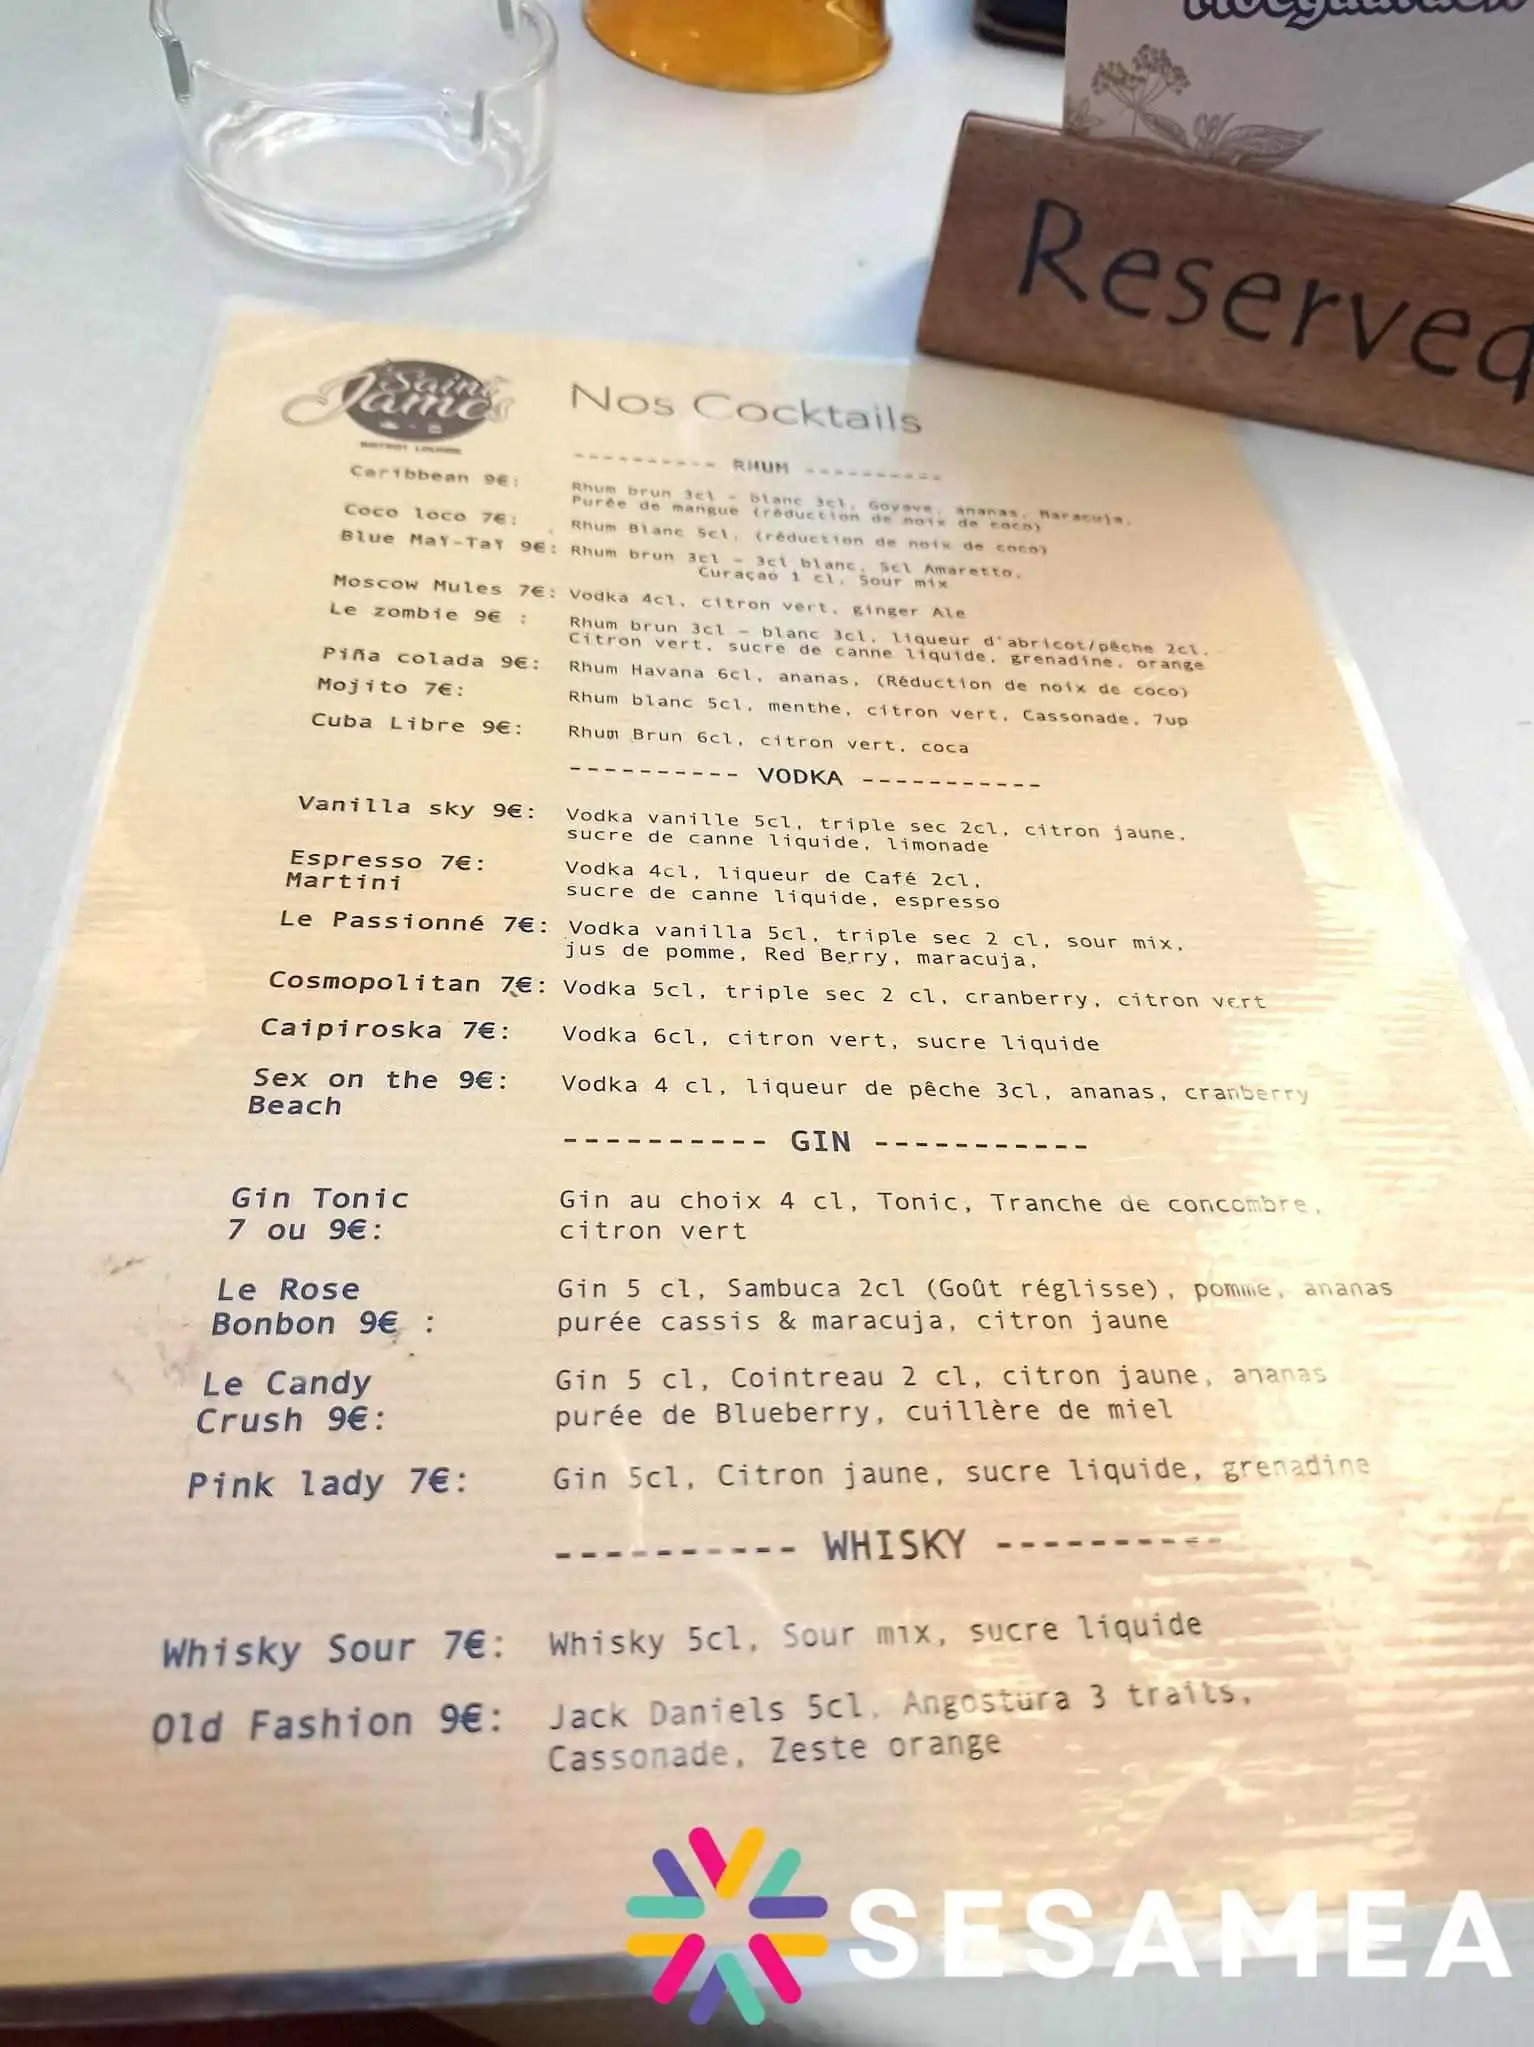 Reserved
Saint
James
Nos Cocktails
---------- RHUM ----------
Caribbean 9€: Rhum brun 3cl - blanc 3cl, Goyave, ananas, Maracuja,
Purée de mangue (réduction de noix de coco)
Coco loco 7€: Rhum Blanc 5cl, (réduction de noix de coco)
Blue Maï-Taï 9€: Rhum brun 3cl - 3cl blanc, 5cl Amaretto,
Curaçao 1 cl, Sour mix
Moscow Mules 7€: Vodka 4cl, citron vert, ginger Ale
Le zombie 9€ : Rhum brun 3cl - blanc 3cl, liqueur d'abricot/pêche 2cl,
Citron vert, sucre de canne liquide, grenadine, orange
Piña colada 9€: Rhum Havana 6cl, ananas, (Réduction de noix de coco)
Mojito 7€: Rhum blanc 5cl, menthe, citron vert, Cassonade, 7up
Cuba Libre 9€: Rhum Brun 6cl, citron vert, coca
---------- VODKA -----------
Vanilla sky 9€: Vodka vanille 5cl, triple sec 2cl, citron jaune,
sucre de canne liquide, limonade
Espresso 7€: Vodka 4cl, liqueur de Café 2cl,
Martini sucre de canne liquide, espresso
Le Passionné 7€: Vodka vanilla 5cl, triple sec 2 cl, sour mix,
jus de pomme, Red Berry, maracuja,
Cosmopolitan 7€: Vodka 5cl, triple sec 2 cl, cranberry, citron vert
Caipiroska 7€: Vodka 6cl, citron vert, sucre liquide
Sex on the 9€: Vodka 4 cl, liqueur de pêche 3cl, ananas, cranberry
Beach
---------- GIN -----------
Gin Tonic Gin au choix 4 cl, Tonic, Tranche de concombre,
7 ou 9€: citron vert
Le Rose Gin 5 cl, Sambuca 2cl (Goût réglisse), pomme, ananas
Bonbon 9€ : purée cassis & maracuja, citron jaune
Le Candy Gin 5 cl, Cointreau 2 cl, citron jaune, ananas
Crush 9€: purée de Blueberry, cuillère de miel
Pink lady 7€: Gin 5cl, Citron jaune, sucre liquide, grenadine
---------- WHISKY ----------
Whisky Sour 7€: Whisky 5cl, Sour mix, sucre liquide
Old Fashion 9€: Jack Daniels 5cl, Angostura 3 traits,
Cassonade, Zeste orange
SESAMEA